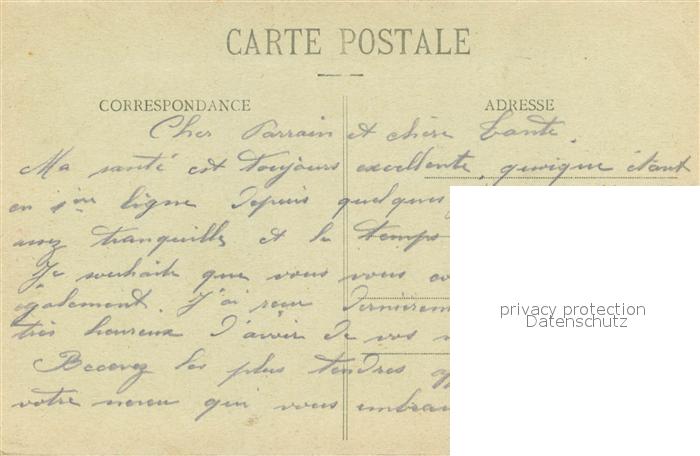 CARTE POSTALE
CORRESPONDANCE
ADRESSE
Cher Parrain et chère Tante.
Ma santé est toujours excellente, quoique étant
en 1ère ligne depuis quelques
assez tranquille et le temps
Je souhaite que vous vous
également. J'ai reçu
très heureux d'avoir de vos
Recevez les plus tendres
votre neveu qui vous
privacy protection
Datenschutz